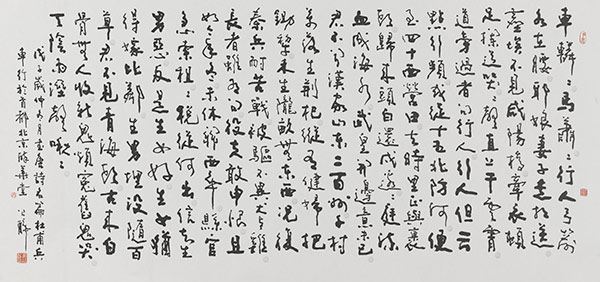 車轔〻馬蕭〻行人弓箭
各在腰耶娘妻子走相送
塵埃不見咸陽橋牽衣頓
足攔道哭〻聲直上干雲霄
道旁過者問行人行人但云
點行頻或從十五北防河便
至四十西營田去時里正與裹
頭歸來頭白還戍邊〻庭流
血成海水武皇開邊意未已
君不聞漢家山東二百州千村
萬落生荊杞縱有健婦把
鋤犁禾生隴畝無東西況復
秦兵耐苦戰被驅不異犬與雞
長者雖有問役夫敢申恨且
如今年冬未休關西卒縣官
急索租〻稅從何出信知生
男惡反是生女好生女猶
得嫁比鄰生男埋沒隨百
草君不見青海頭古來白
骨無人收新鬼煩冤舊鬼哭
天陰雨濕聲啾〻
戊子歲仲冬月書唐詩名篇杜甫兵
車行於首都北京